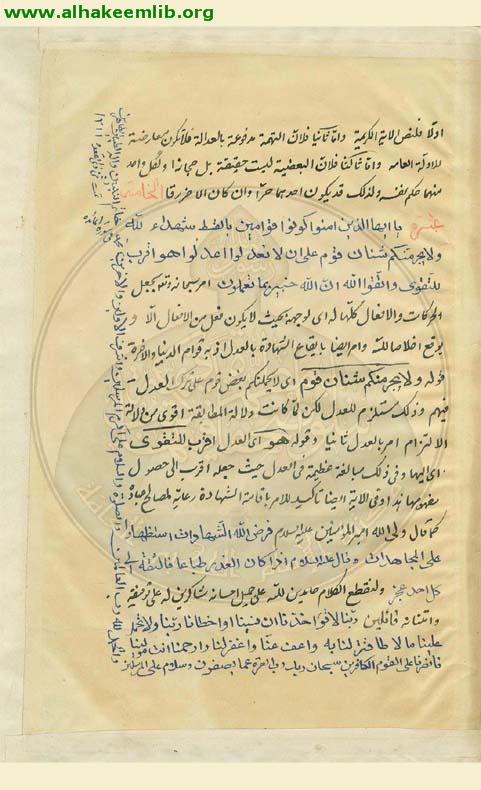 www.alhakeemlib.org
اولا فلنص الاية الكريمة واما ثانيا فلان التهمة مدفوعة بالعدالة فلا تكون معارضة
للادلة العامه واما ثالثا فلان البعضية ليست حقيقة بل مجازا ولكل واحد
منهما حكم نفسه ولذلك قد يكون احدهما حرا وان كان الاخر رقا الخامسة
عشر يا ايها الذين امنوا كونوا قوامين بالقسط شهداء لله
ولا يجرمنكم شنان قوم على ان لا تعدلوا اعدلوا هو اقرب
للتقوى واتقوا الله ان الله خبير بما تعملون امر سبحانه وتعالى بجعل
الحركات والافعال كلها له اى لوجهه بحيث لا يكون فعل من الافعال الا و
يوقع اخلاصا لله وامر ايضا بايقاع الشهادة بالعدل اذ به قوام الدنيا والاخرة
قوله ولا يجرمنكم شنان قوم اى لا يحملنكم بغض قوم على ترك العدل
فيهم وذلك مستلزم للعدل لكن لما كانت دلالة المطابقة اقوى من دلالة
الالتزام امر بالعدل ثانيا وقوله هو اى العدل اقرب للتقوى
اى اليها وفى ذلك مبالغة عظيمة فى العدل حيث جعله اقرب الى حصول
هذا وفى الاية ايضا تاكيد للامر باقامة الشهادة رعاية لمصالح العباد
كما قال ولى الله امير المؤمنين عليه السلام فرض الله الشهادات استظهارا
على المجاحدات وقال عليه السلام اذا كان الغدر طباعا فالثقة الى
كل احد عجز ولنقطع الكلام حامدين لله على جميل احسانه شاكرين له على توفيقه
وامتنانه قائلين ربنا لا تؤاخذنا ان نسينا او اخطانا ربنا ولا تحمل
علينا ما لا طاقة لنا به واعف عنا واغفر لنا وارحمنا انت مولينا
فانصرنا على القوم الكافرين سبحان ربك رب العزة عما يصفون وسلام على المرسلين
والحمد لله رب العالمين والصلوة والسلام على اكرم المرسلين واشرف الاولين والاخرين محمد خاتم النبيين واله الطيبين الطاهرين